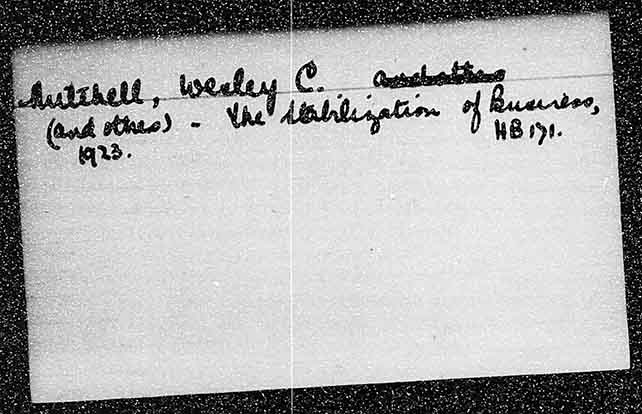 Mitchell, Wesley C. and others
(and others) - The Stabilization of Business,
1923. HB 171.